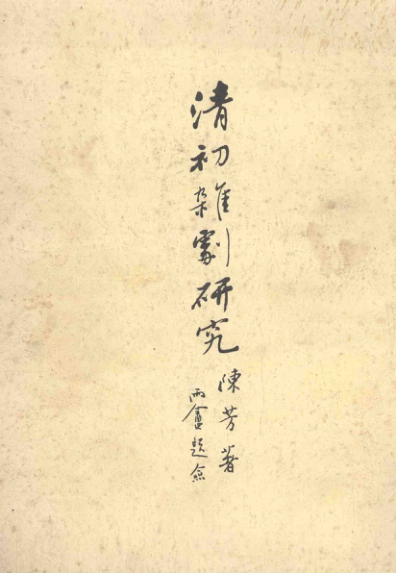 清初雜劇研究
陳芳著
雨盦題僉